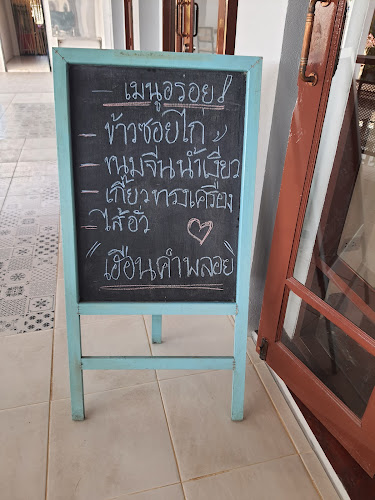 - เมนูอร่อย!
- ข้าวซอยไก่
- ขนมจีนน้ำเงี้ยว
- เกี๊ยวทรงเครื่อง
- ไส้อั่ว
"เฮือนคำพลอย"